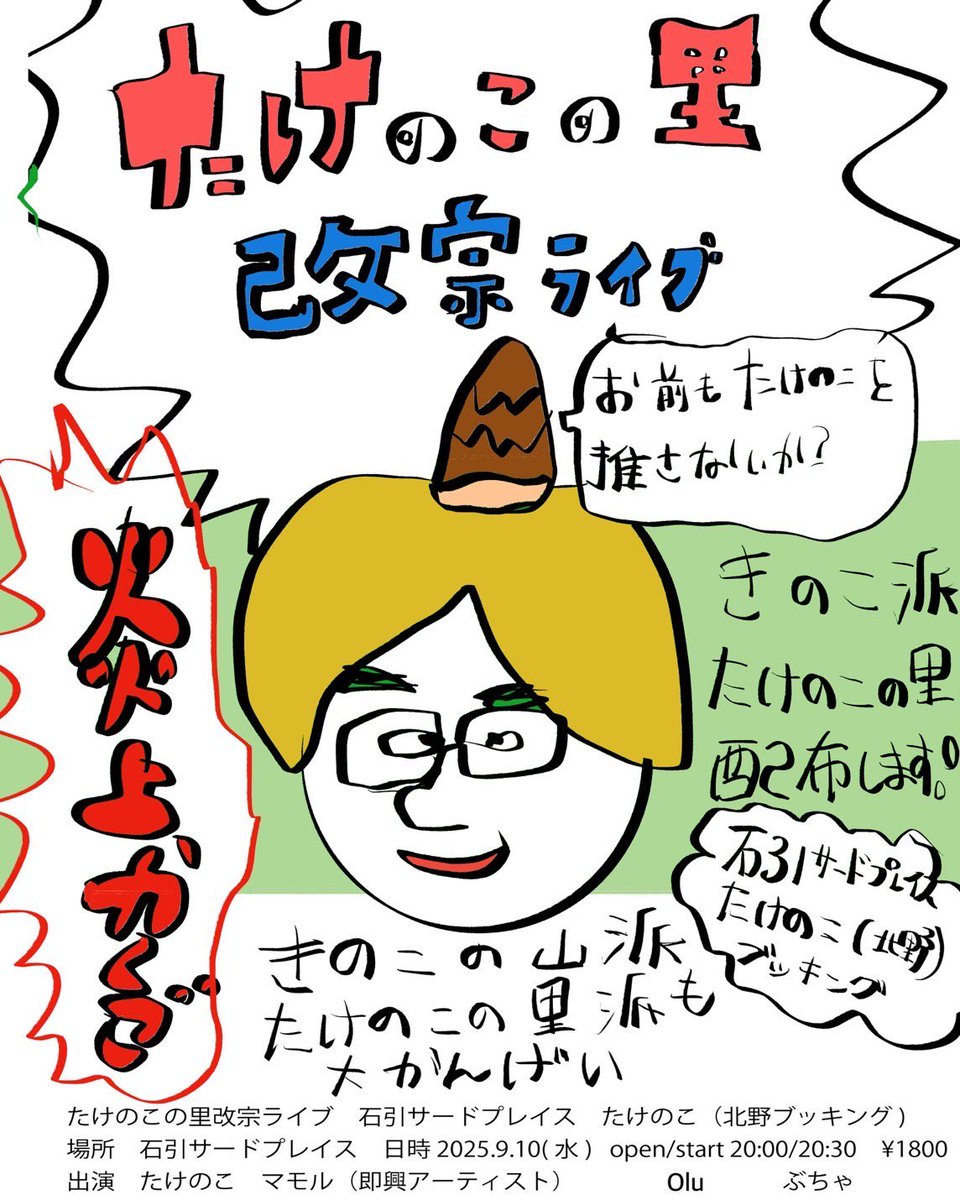 たけのこの里
改宗ライブ
お前もたけのこを
推さないか?
炎上かくご
きのこ派
たけのこの里
配布します。
石引サードプレイス
たけのこ(北野)
ブッキング
きのこの山派
たけのこの里派も
大かんげい
たけのこの里改宗ライブ　石引サードプレイス　たけのこ（北野ブッキング)
場所　石引サードプレイス　日時 2025.9.10( 水 )　open/start 20:00/20:30　¥1800
出演　たけのこ　マモル（即興アーティスト）　Olu　ぶちゃ